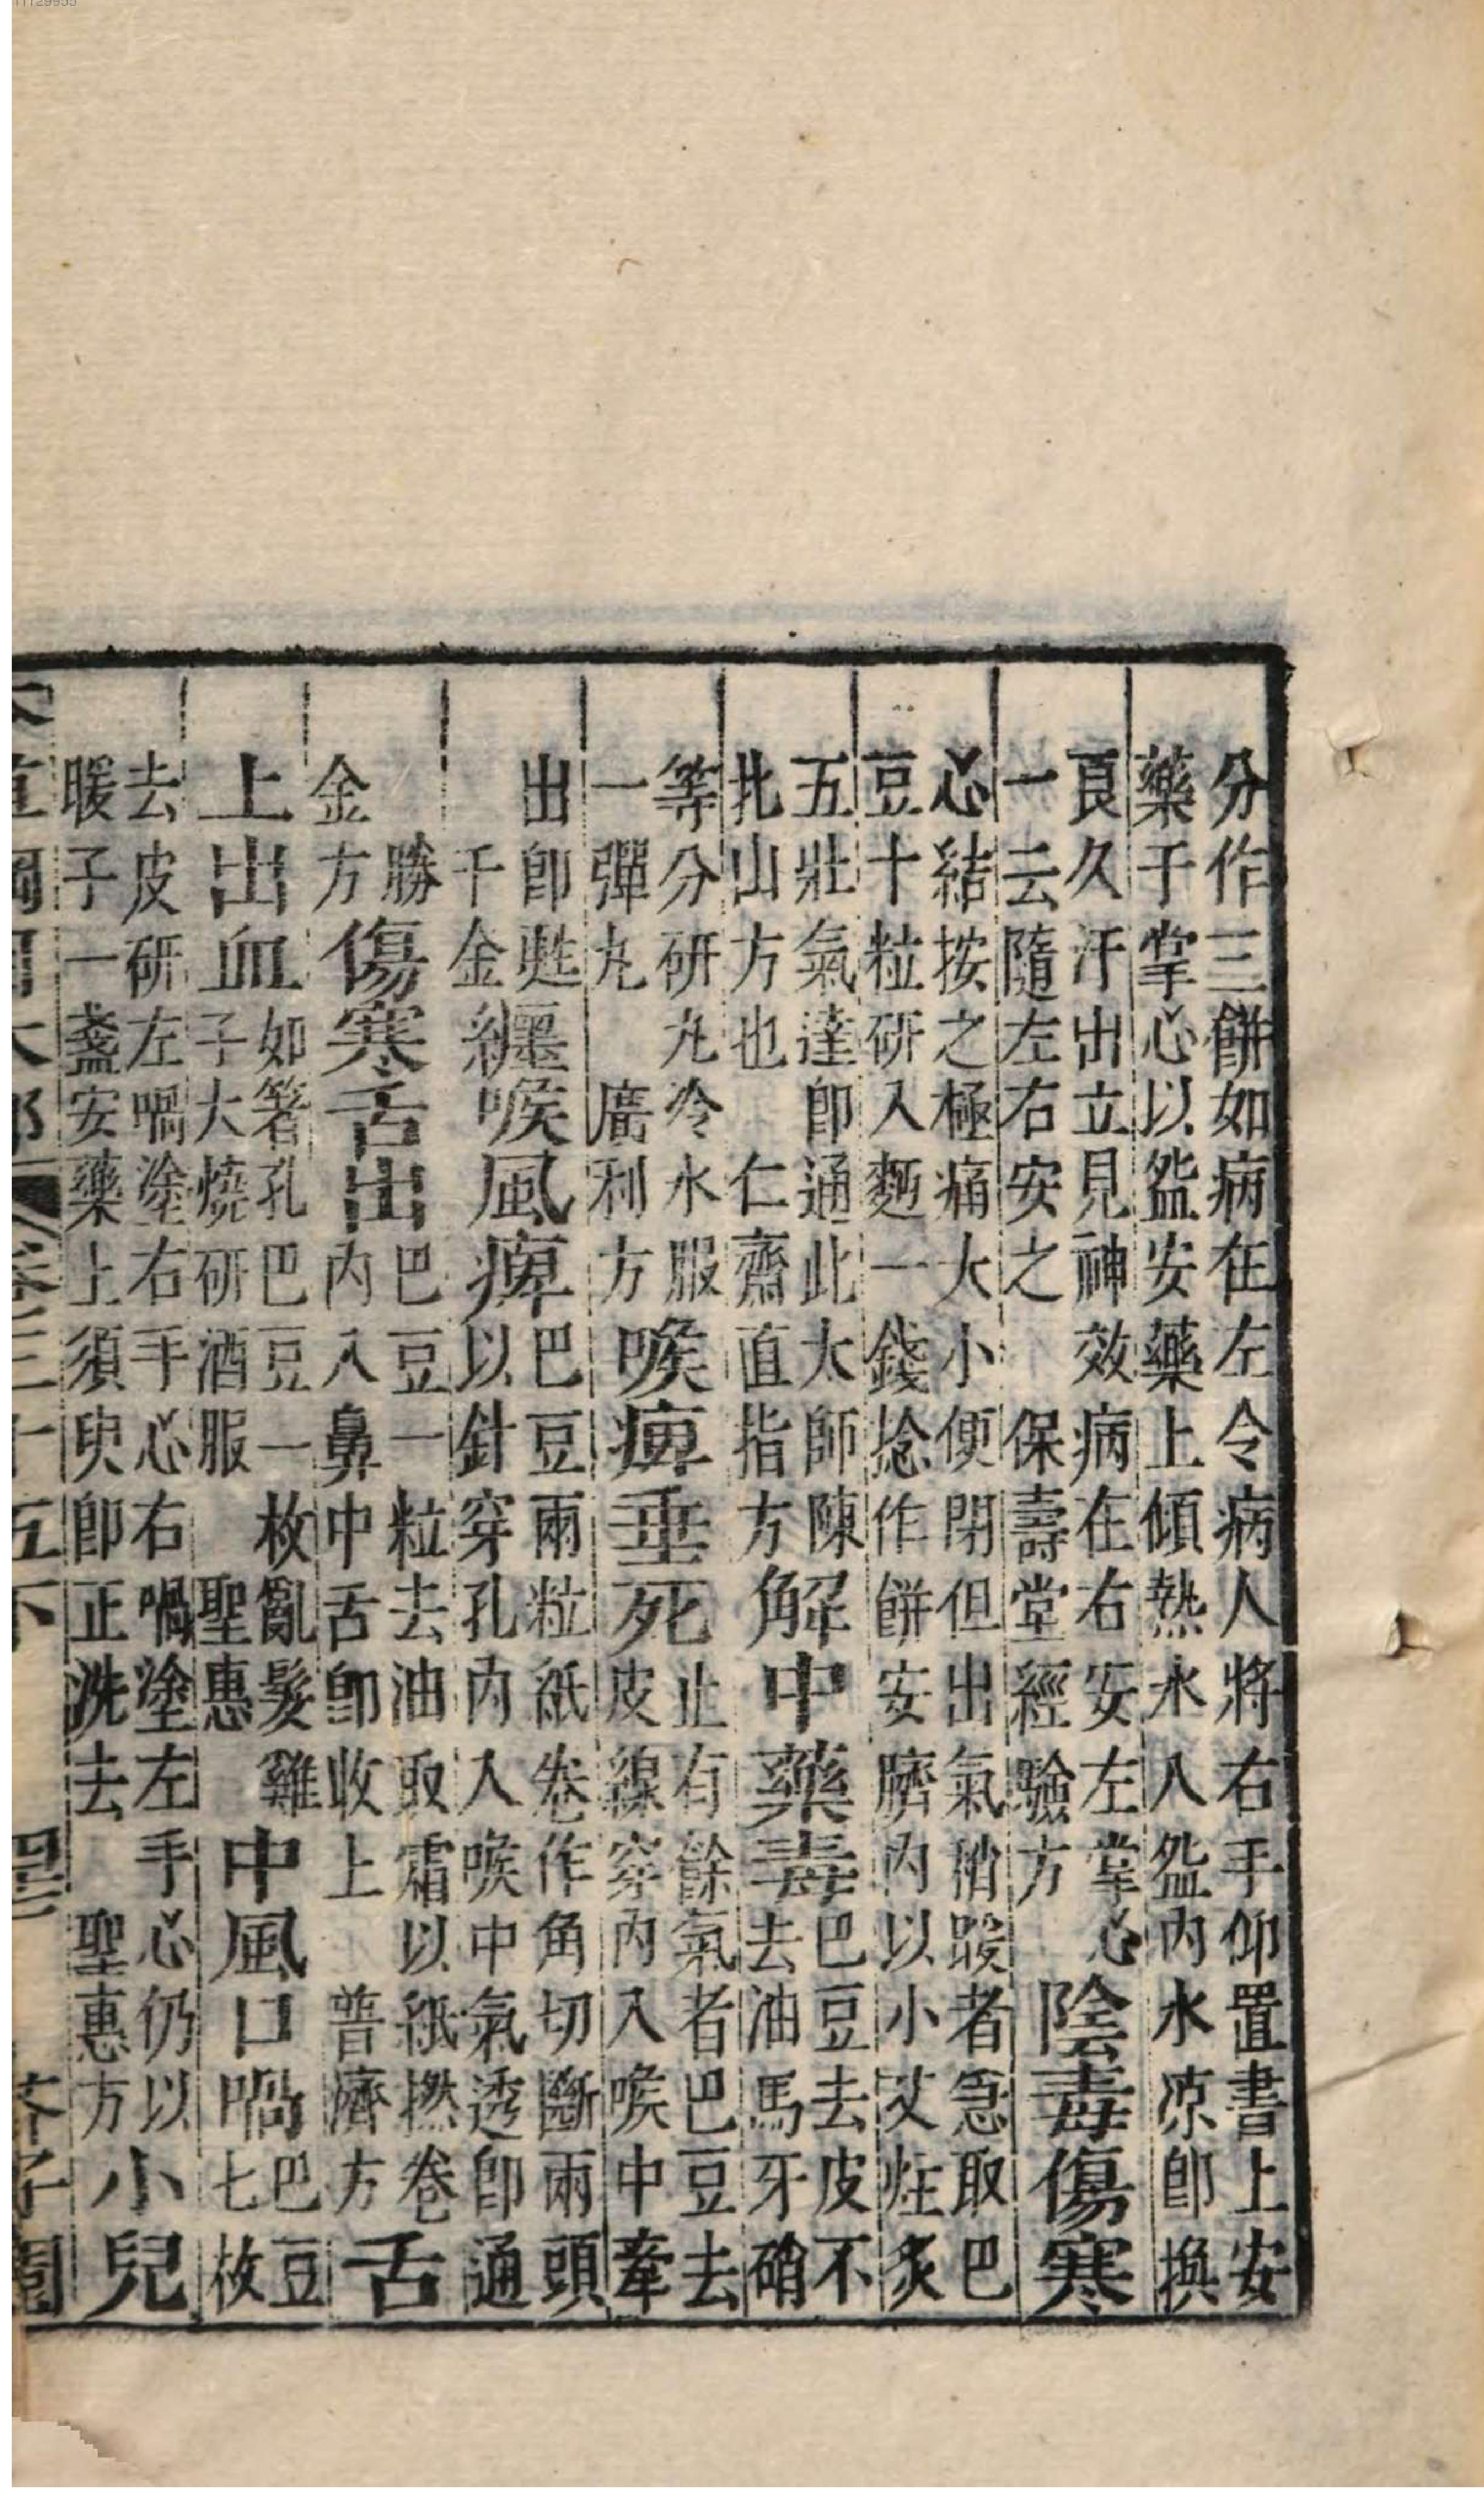 分作三餅如病在左令病人將右手仰置書上安
藥于掌心以盌安藥上傾熱水入盌內水凉即換
良久汗出立見神效病在右安左掌心
一云隨左右安之 保壽堂經驗方
陰毒傷寒
心結按之極痛大小便閉但出氣稍暖者急取巴
豆十粒研入麪一錢捻作餅安臍內以小艾炷炙
五壯氣達即通此太師陳
北山方也 仁齋直指方
解中藥毒
巴豆去皮不
去油馬牙硝
等分研丸冷水服
一彈丸 廣利方
喉痹垂死
止有餘氣者巴豆去
皮線穿內入喉中牽
出即甦
千金
纏喉風痺
巴豆兩粒紙卷作角切斷兩頭
以針穿孔內入喉中氣透即通
勝
金方
傷寒舌出
巴豆一粒去油取霜以紙撚卷
內入鼻中舌即收上 普濟方
舌
上出血
如箸孔巴豆一枚亂髮雞
子大燒研酒服 聖惠
中風口喎
巴豆
七枚
去皮研左喎塗右手心右喎塗左手心仍以
暖子一盞安藥上須臾即正洗去 聖惠方
小兒
本草綱目木部 卷三十五下 芥子園